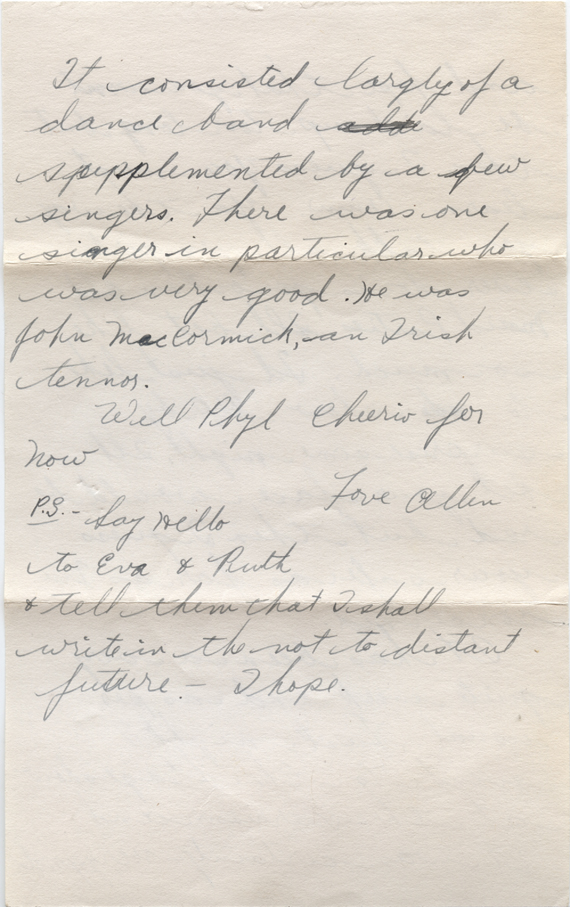 It consisted largly of a
dance band
supplemented by a few
singers. There was one
singer in particular who
was very good. He was
John MacCormick, an Irish
tennor.
Well Phyl Cheerio for
now
Love Allen
P.S.- Say Hello
to Eva & Ruth
& tell them that I shall
write in the not to distant
future - I hope.